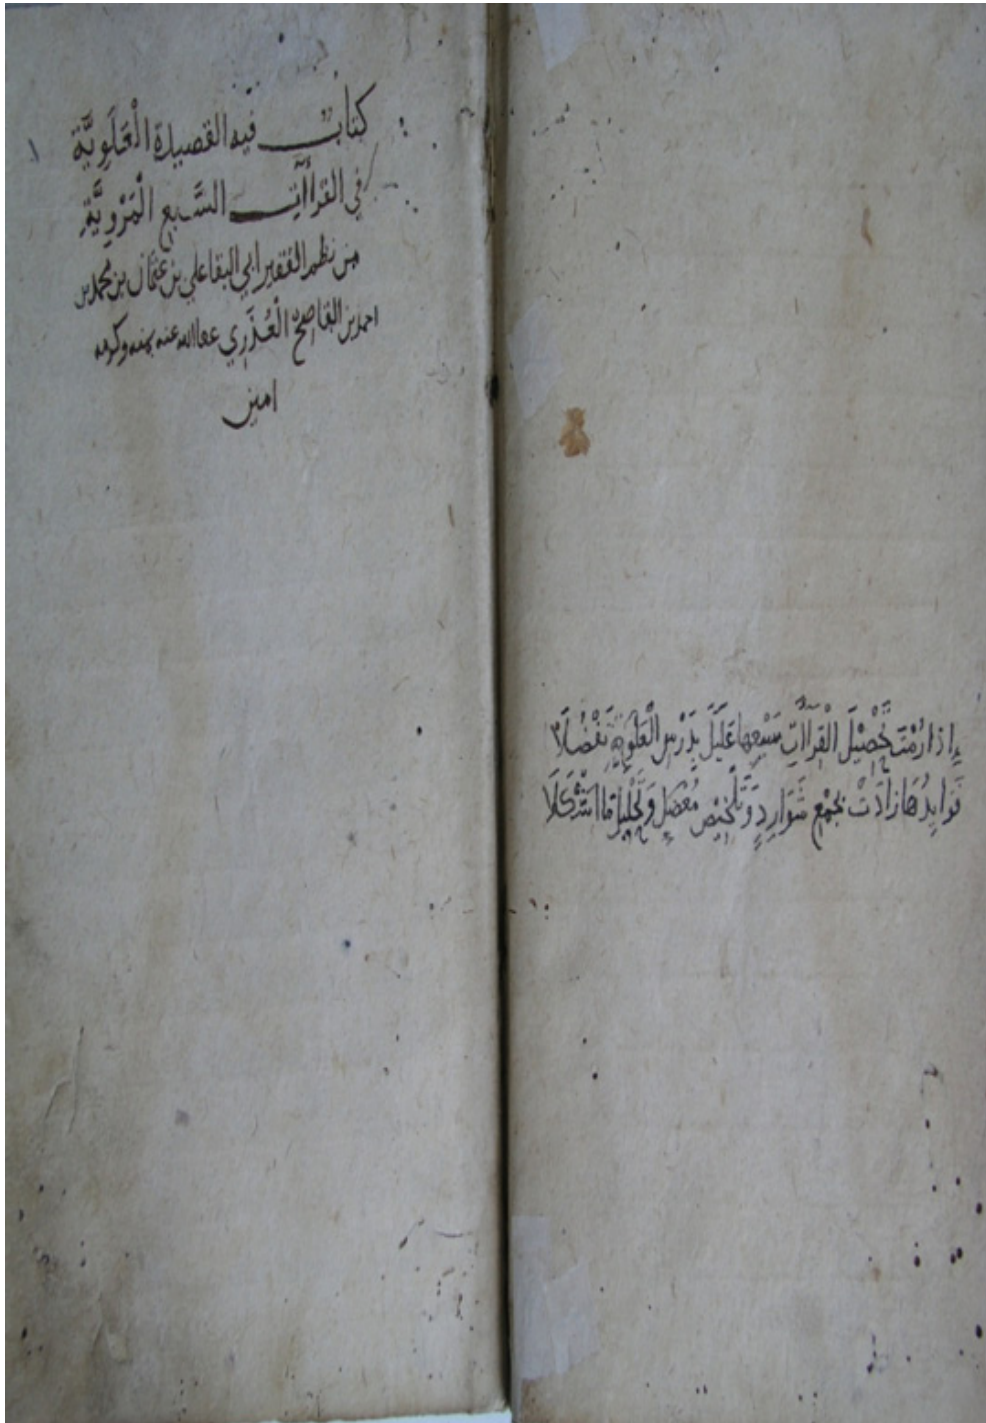 إذا رمت تحصيل القراآت سبعها عليك بدرس العلوية تفضلا
فوايدها زادت بجمع شوارد وتلخيص معضل وتحليل ما اشكلا
كتاب فيه القصيدة الْعَلَوِيَّة
في القراآت السَّبع الْمَرْوِيَّةِ
من نظم الفقير ابي البقا علي بن عثمان بن محمد بن
احمد بن القاصح الْعُذْرِي عفا الله عنه بمنه وكرمه
امين